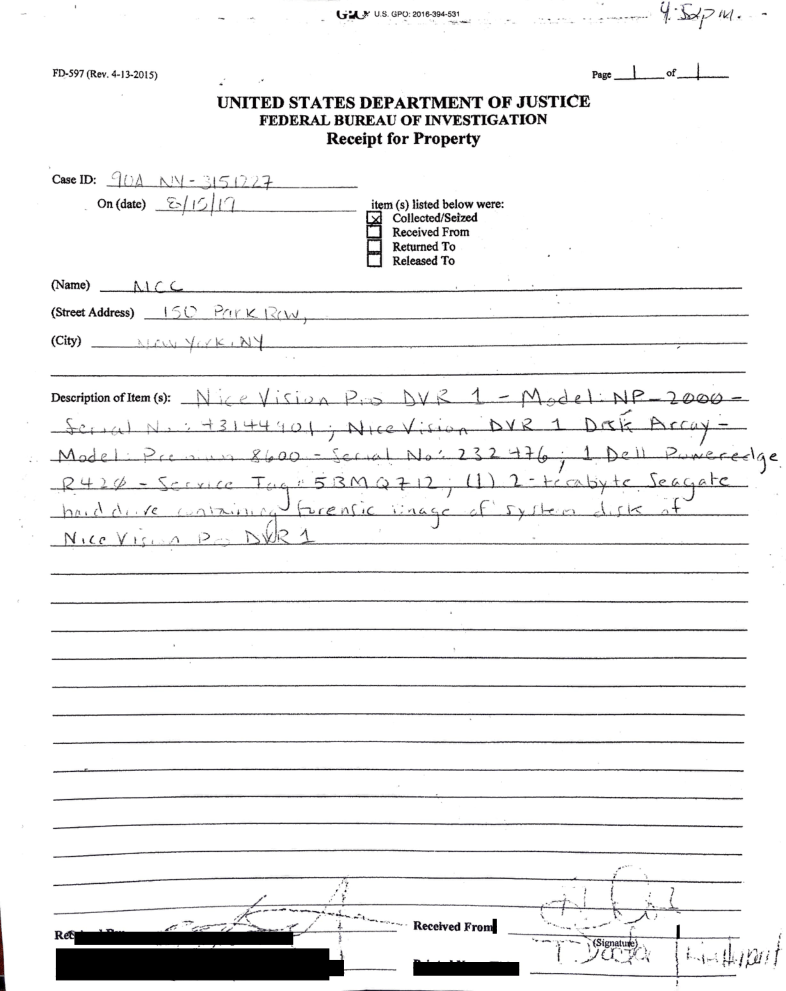 U.S. GPO: 2016-394-531
FD-597 (Rev. 4-13-2015)
Page 1 of 1
UNITED STATES DEPARTMENT OF JUSTICE
FEDERAL BUREAU OF INVESTIGATION
Receipt for Property
Case ID: 90A NY-3151227
On (date)
item (s) listed below were:
Collected/Seized
Received From
Returned To
Released To
(Name) MCC
(Street Address) 150 Park Row,
(City) New York, NY
Description of Item (s): Nice Vision Pro DVR 1 - Model: NP-2000 -
Serial No: ; Nice Vision DVR 1 Disk Array -
Model: 8600 - Serial No: 232476; 1 Dell Poweredge
R420 - Service Tag: 5BMQ712; (1) 2-terabyte Seagate
hard drive containing forensic image of system disk of
Nice Vision Pro DVR 1
Received From
(Signature)